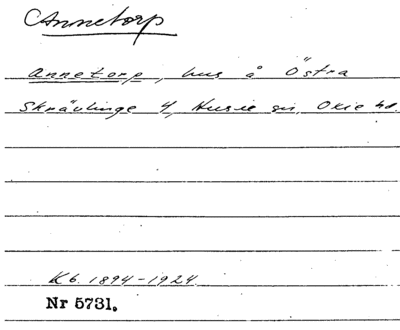 Annetorp
Annetorp, hus å Östra
Skrävlinge 4, Husie sn, Oxie hd.
Kb. 1894-1924.
Nr 5731.